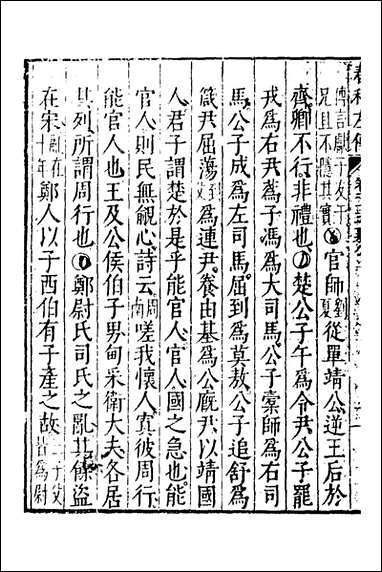 春秋左傳
傳言獻子友于兄且不隱其實○官師劉夏從單靖公逆王后於
齊卿不行非禮也○楚公子午為令尹公子罷
戎為右尹蒍子馮為大司馬公子橐師為右司
馬公子成為左司馬屈到為莫敖公子追舒為
箴尹屈蕩為連尹養由基為宮廐尹以靖國
人君子謂楚於是乎能官人官人國之急也能
官人則民無覦心詩云周南嗟我懷人寘彼周行
能官人也王及公侯伯子男甸采衛大夫各居
其列所謂周行也○鄭尉氏司氏之亂其餘盜
在宋亂在十年鄭人以子西伯有子產之故三子父皆為尉